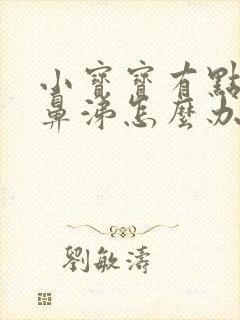 小寶寶有點
鼻涕怎麼办
劉敏濤